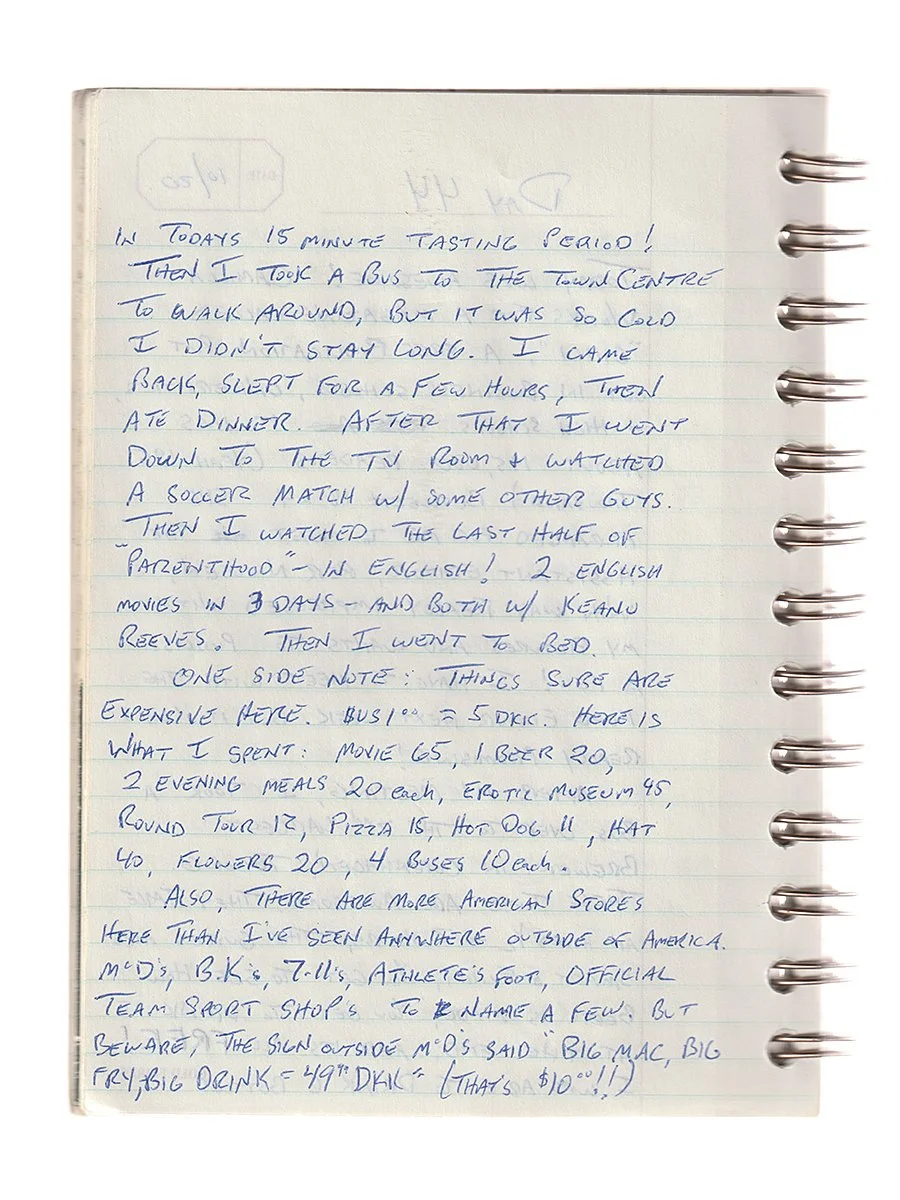 IN TODAYS 15 MINUTE TASTING PERIOD!
THEN I TOOK A BUS TO THE TOWN CENTRE
TO WALK AROUND, BUT IT WAS SO COLD
I DIDN'T STAY LONG. I CAME
BACK, SLEPT FOR A FEW HOURS, THEN
ATE DINNER. AFTER THAT I WENT
DOWN TO THE TV ROOM & WATCHED
A SOCCER MATCH W/ SOME OTHER GUYS.
THEN I WATCHED THE LAST HALF OF
"PARENTHOOD" - IN ENGLISH! 2 ENGLISH
MOVIES IN 3 DAYS - AND BOTH W/ KEANU
REEVES. THEN I WENT TO BED.
ONE SIDE NOTE: THINGS SURE ARE
EXPENSIVE HERE. $US1.00 = 5 DKK. HERE IS
WHAT I SPENT: MOVIE 65, 1 BEER 20,
2 EVENING MEALS 20 each, EROTIC MUSEUM 45,
ROUND TOUR 12, PIZZA 15, HOT DOG 11, HAT
40, FLOWERS 20, 4 BUSES 10 each.
ALSO, THERE ARE MORE AMERICAN STORES
HERE THAN I'VE SEEN ANYWHERE OUTSIDE OF AMERICA.
McD's, B.K's, 7-11's, ATHLETE'S FOOT, OFFICIAL
TEAM SPORT SHOP'S TO NAME A FEW. BUT
BEWARE, THE SIGN OUTSIDE McD'S SAID "BIG MAC, BIG
FRY, BIG DRINK = 49 DKK" (THAT'S $10.00!!)
DAY 44
DATE 10/20